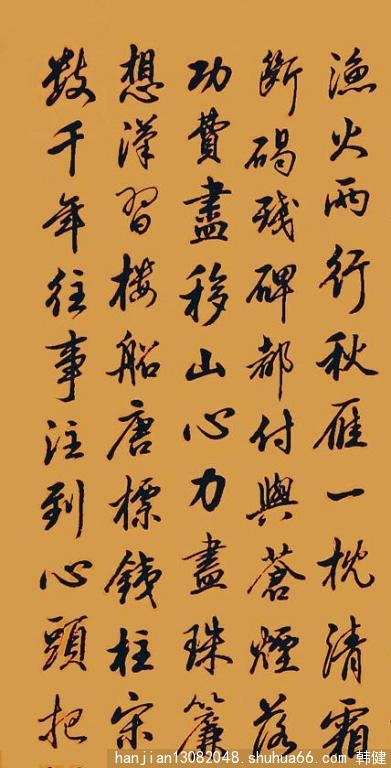 漁火兩行秋雁一枕清霜
斷碣殘碑都付與蒼煙落
功費盡移山心力盡珠簾
想漢習樓船唐標鐵柱宋
數千年往事注到心頭把
hanjian13082048.shuhua66.com 韩健